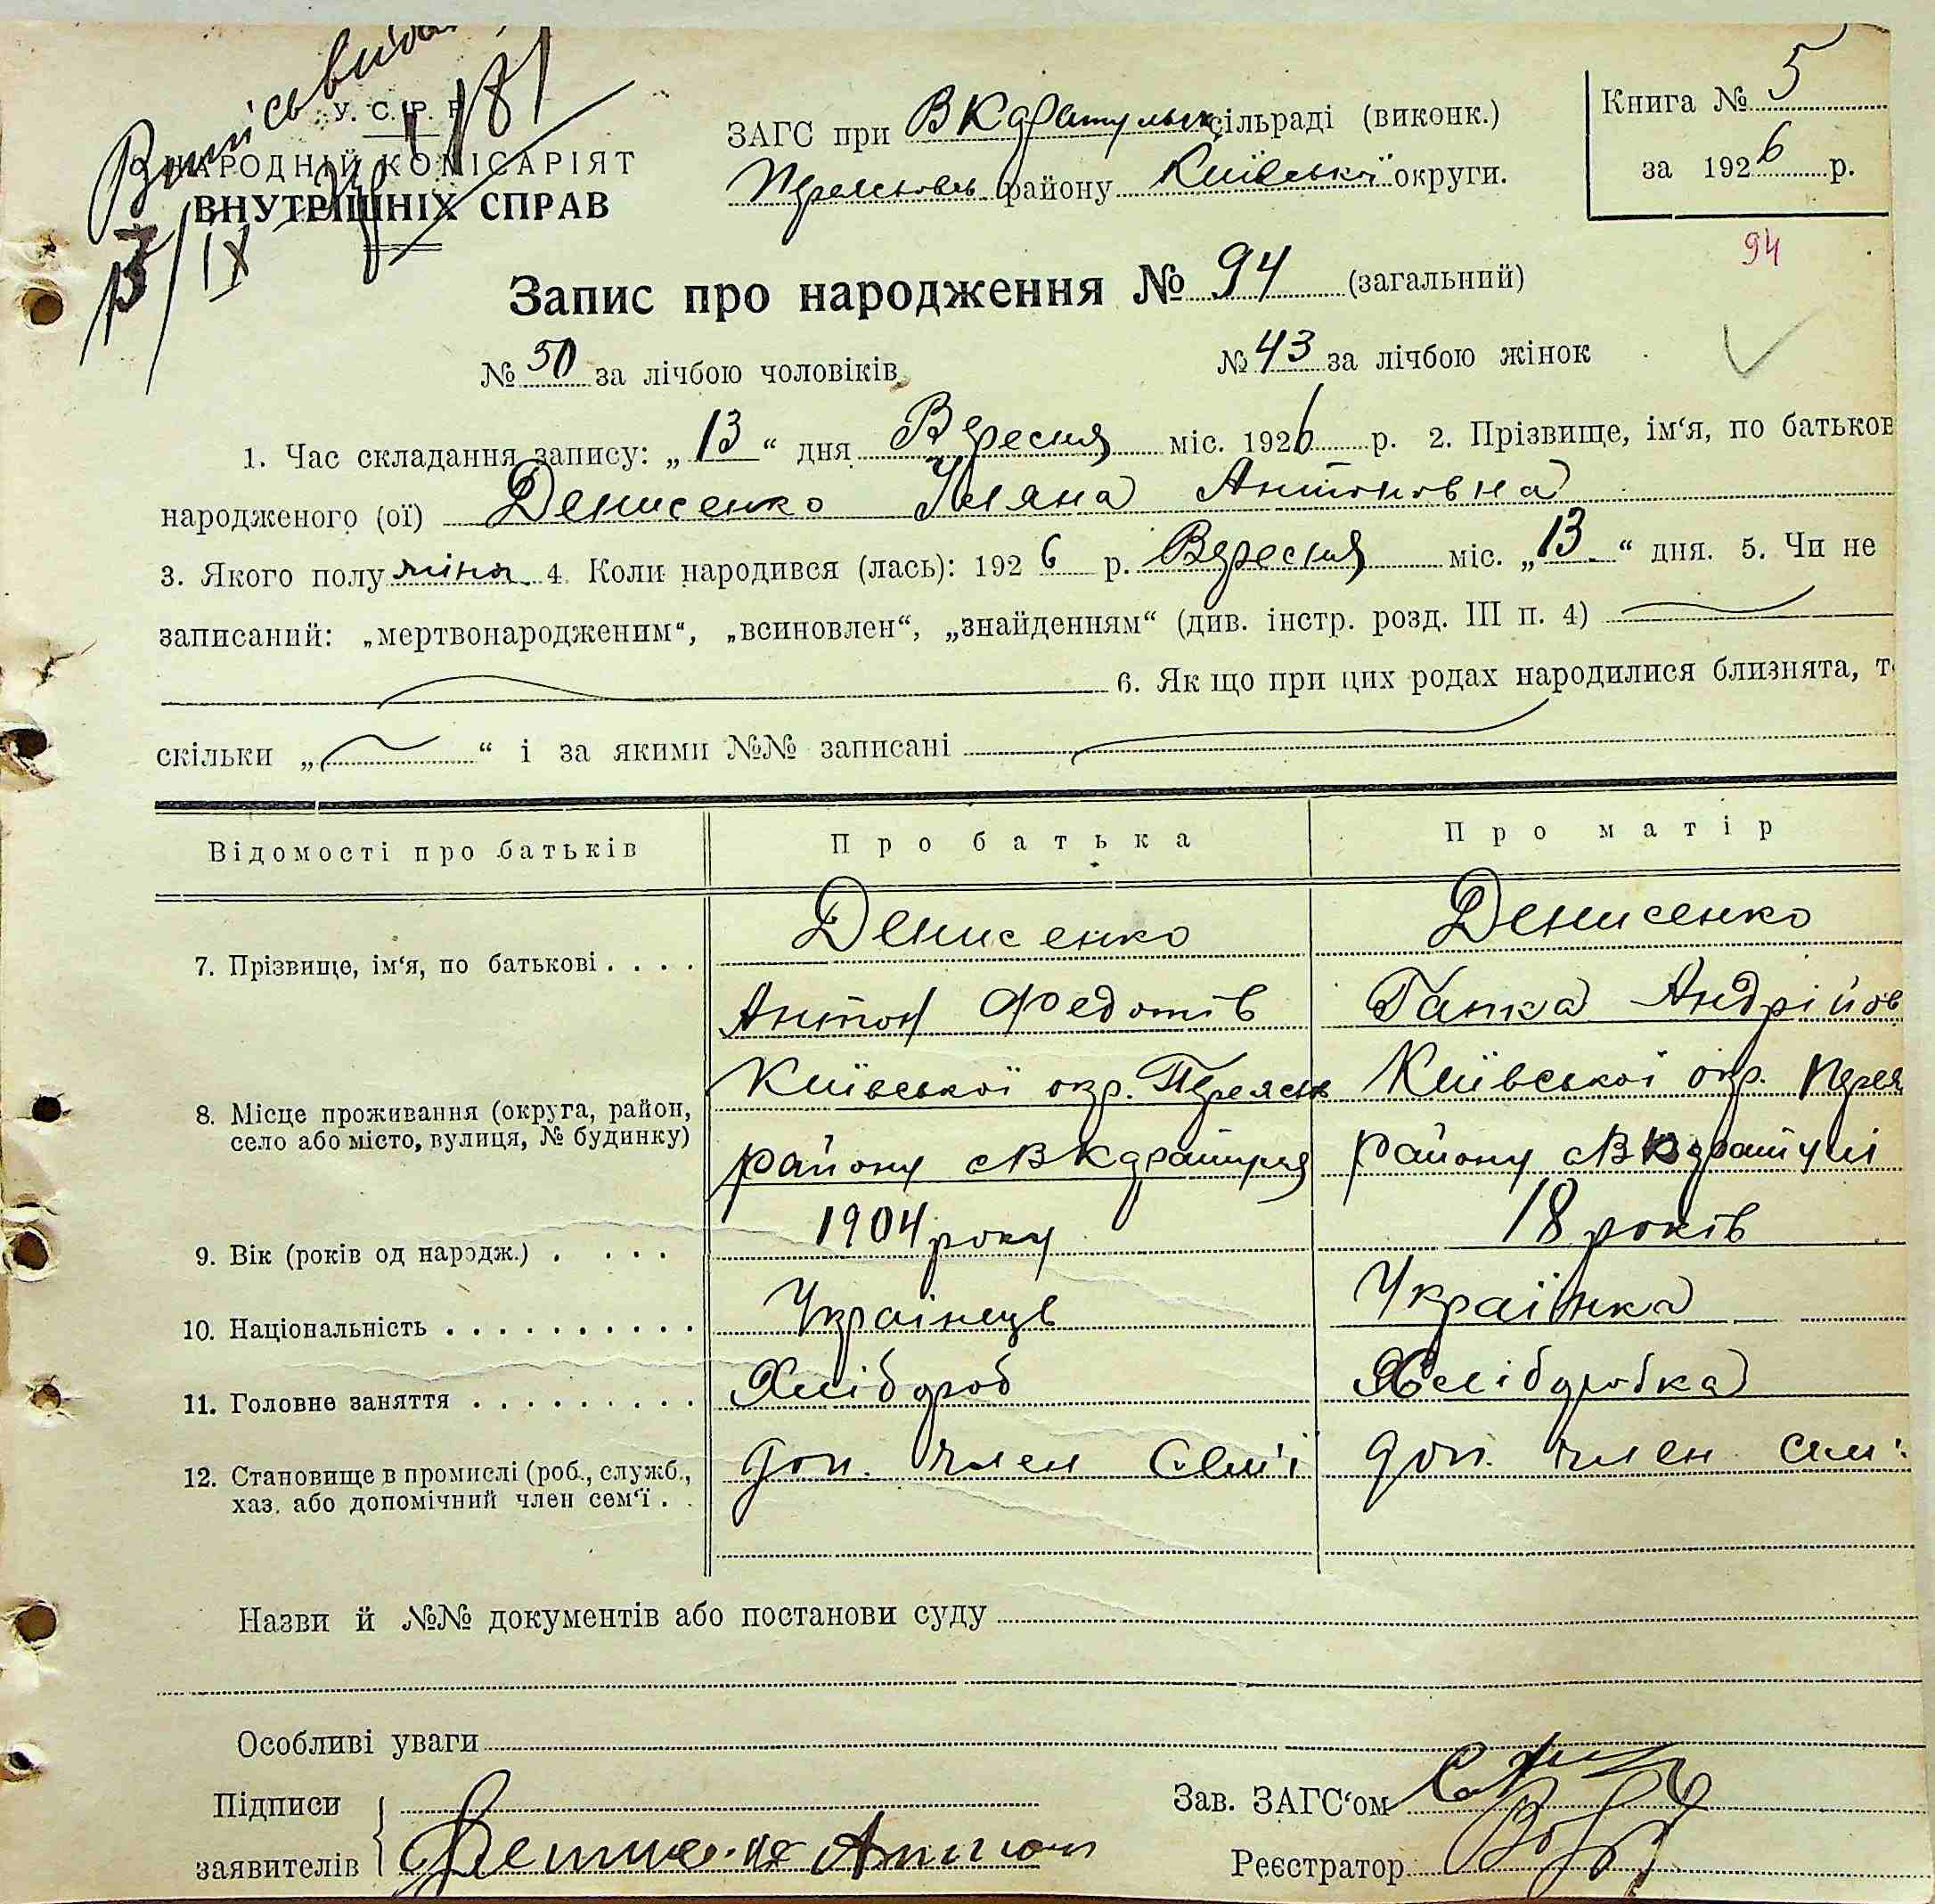 У. С. Р. Р.
НАРОДНІЙ КОМІСАРІЯТ
ВНУТРІШНІХ СПРАВ
ЗАГС при В Каратульск. сільраді (виконк.)
Переясловсь району Київської округи.
Книга № 5
за 1926 р.
94
Запис про народження № 94 (загальний)
№ 50 за лічбою чоловіків
№ 43 за лічбою жінок
1. Час складання запису: „13“ дня Вересня міс. 1926 р. 2. Прізвище, ім‘я, по батьков
народженого (ої) Денисенко Уляна Антоновна
3. Якого полу жіноч. 4. Коли народився (лась): 1926 р. Вересня міс. „13“ дня. 5. Чи не
записаний: „мертвонародженим“, „всиновлен“, „знайденням“ (див. інстр. розд. III п. 4)
6. Як що при цих родах народилися близнята, т
скільки „ “ і за якими №№ записані
Відомості про батьків Про батька Про матір
7. Прізвище, ім‘я, по батькові . . . . Денисенко Денисенко
Антон Федотів Ганка Андрійов
8. Місце проживання (округа, район, село або місто, вулиця, № будинку) Київської окр. Переясл Київської окр. Перея
району с В Каратуля району с В Каратулі
9. Вік (років од народж.) . . . . 1904 року 18 років
10. Національність . . . . . . . . . . Українець Українка
11. Головне заняття . . . . . . . . . Хлібороб Хлiборобка
12. Становище в промислі (роб., служб., хаз. або допомічний член сем‘ї . . доп. член Семʼї доп. член сем
Назви й №№ документів або постанови суду
Особливі уваги
Підписи
заявителів Денисенко Антон
Зав. ЗАГС‘ом
Реєстратор